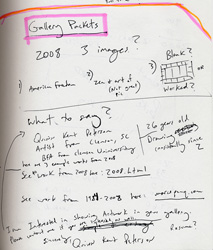 Gallery Packets
2008 3 images?
1) American Freedom
2) Zen & art of
(Not great
pic
3) Blank?
OR
Worked?
What to say?
Quinn Kent Peterson
Artist from Clemson, SC
BFA from Clemson University
26 years old
Drawing
since
?
here are 3 sample works from 2008
See work from 2008 here: 2008.html
See work from 1981-2008 here:
I am Interested in showing Artwork in your gallery
Please contact me if
Sincerely,
Quinn Kent Peterson
Resume?